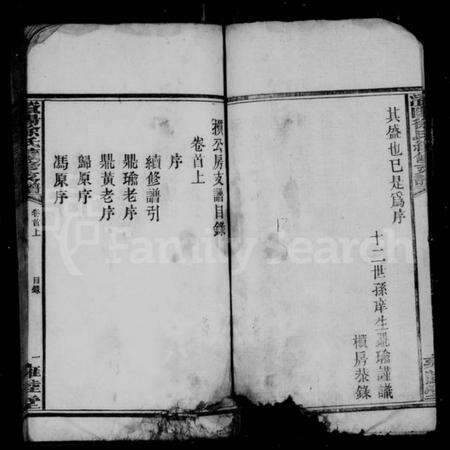 其盛也已是爲序
十二世孫庠生鼎瑜謹識
櫃房恭錄
公房支譜目錄
卷首上
序
續修譜引
鼎瑜老序
鼎黃老序
歸原序
馮原序
卷首上
目錄
一
雍睦堂
FamilySearch